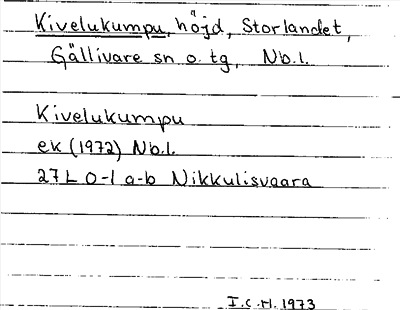 Kivelukumpu, höjd, Storlandet,
Gällivare sn o. tg, Nb.l.
Kivelukumpu
ek (1972) Nb.l.
27L 0-1 a-b Nikkulisvaara
I.C.H. 1973